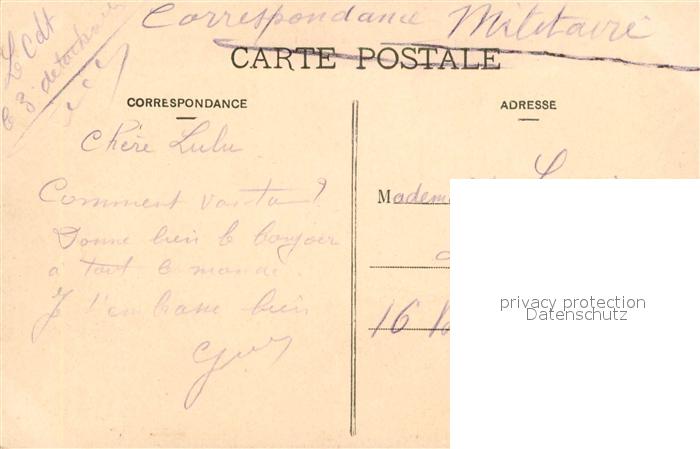 Correspondance Militaire
Le Cdt
le 3e détachement
CARTE POSTALE
CORRESPONDANCE
ADRESSE
Chère Lulu
Comment vas-tu?
Donne bien le bonjour
à tout le monde.
Je t'embrasse bien
Guy
Madem
16
privacy protection
Datenschutz